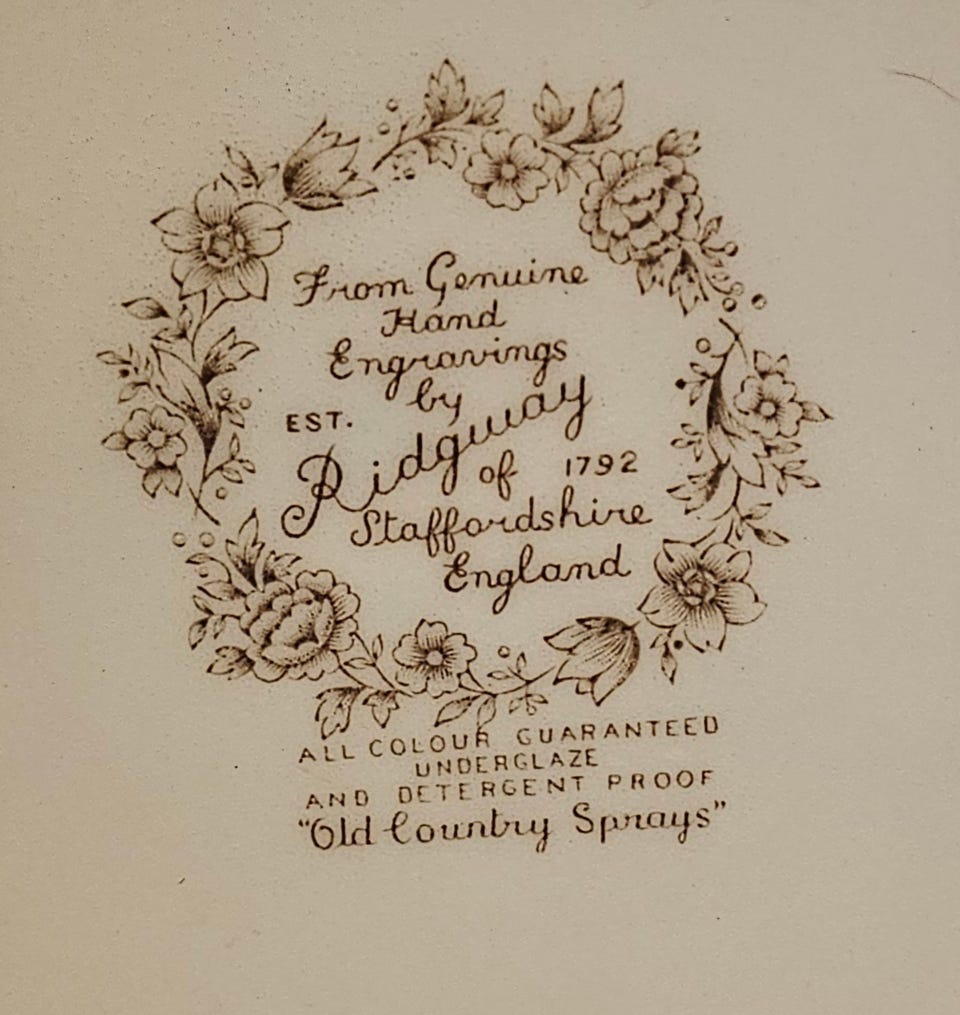 From Genuine
Hand
Engravings
by
EST.
Ridgway
of 1792
Staffordshire
England
ALL COLOUR GUARANTEED
UNDERGLAZE
AND DETERGENT PROOF
"Old Country Sprays"